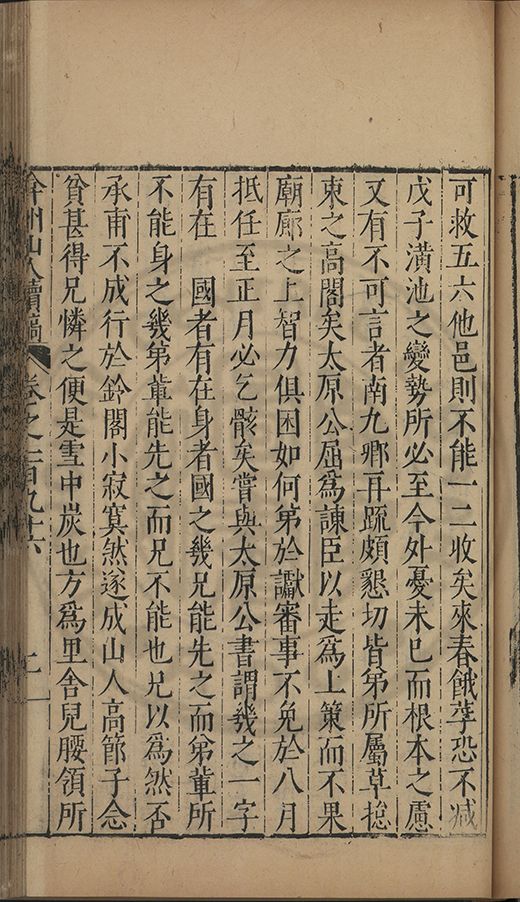 可救五六他邑則不能一二收矣來春餓莩恐不减
戊子潢池之變勢所必至今外憂未已而根本之慮
又有不可言者南九卿再疏頗懇切皆弟所屬草揔
束之高閣矣太原公屈爲諫臣以走爲上策而不果
廟廊之上智力俱困如何弟於讞審事不免於八月
抵任至正月必乞骸矣嘗與太原公書謂幾之一字
有在　國者有在身者國之幾兄能先之而弟軰所
不能身之幾弟軰能先之而兄不能也兄以爲然否
承甫不成行於鈴閣小寂寞然遂成山人高節子念
貧甚得兄憐之便是雪中炭也方爲里舍兒腰領所
弇州山人續稿　卷之一百九十六